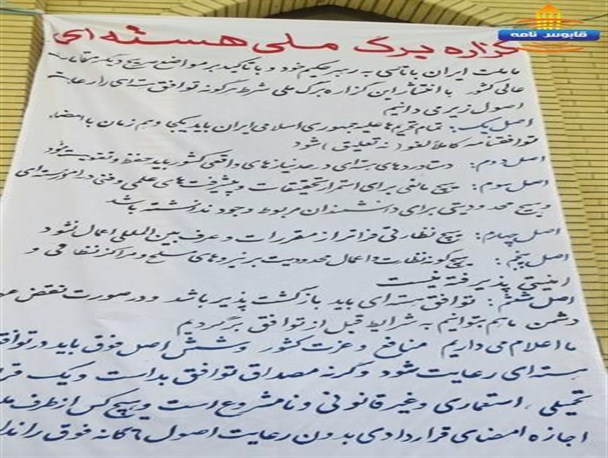 قابوس نامه
گزاره برگ ملی هسته ای
ما ملت ایران با تأسی به رهبر حکیم خود و با تأکید بر مواضع صریح دیگر مقامات
عالی کشور با انتشار این گزاره برگ ملی شرط هرگونه توافق هسته ای را رعایت
اصول زیر می دانیم
اصل یک: تمام تحریم ها علیه جمهوری اسلامی ایران باید یکجا و هم زمان با امضاء
توافقنامه کاملا لغو (نه تعلیق) شود
اصل دوم: دستاوردهای هسته ای در حد نیازهای واقعی کشور باید حفظ و تقویت شود
اصل سوم: هیچ مانعی برای استمرار تحقیقات و پیشرفت های علمی و فنی در امور هسته ای
و هیچ محدودیتی برای دانشمندان مربوط وجود نداشته باشد
اصل چهارم: هیچ نظارتی فراتر از مقررات و عرف بین المللی اعمال نشود
اصل پنجم: هیچ گونه نظارت و اعمال محدودیت بر نیروهای مسلح و مراکز نظامی و
امنیتی پذیرفته نیست
اصل ششم: توافق هسته ای باید بازگشت پذیر باشد و در صورت نقض عهد
دشمن ما هم بتوانیم به شرایط قبل از توافق برگردیم
ما اعلام می داریم منافع و عزت کشور و شش اصل فوق باید در توافق
هسته ای رعایت شود وگرنه مصداق توافق بد است و یک قرا
تحمیلی، استعماری و غیرقانونی و نامشروع است و هیچ کس از طرف مل
اجازه امضای قراردادی بدون رعایت اصول ۶ گانه فوق را ندا